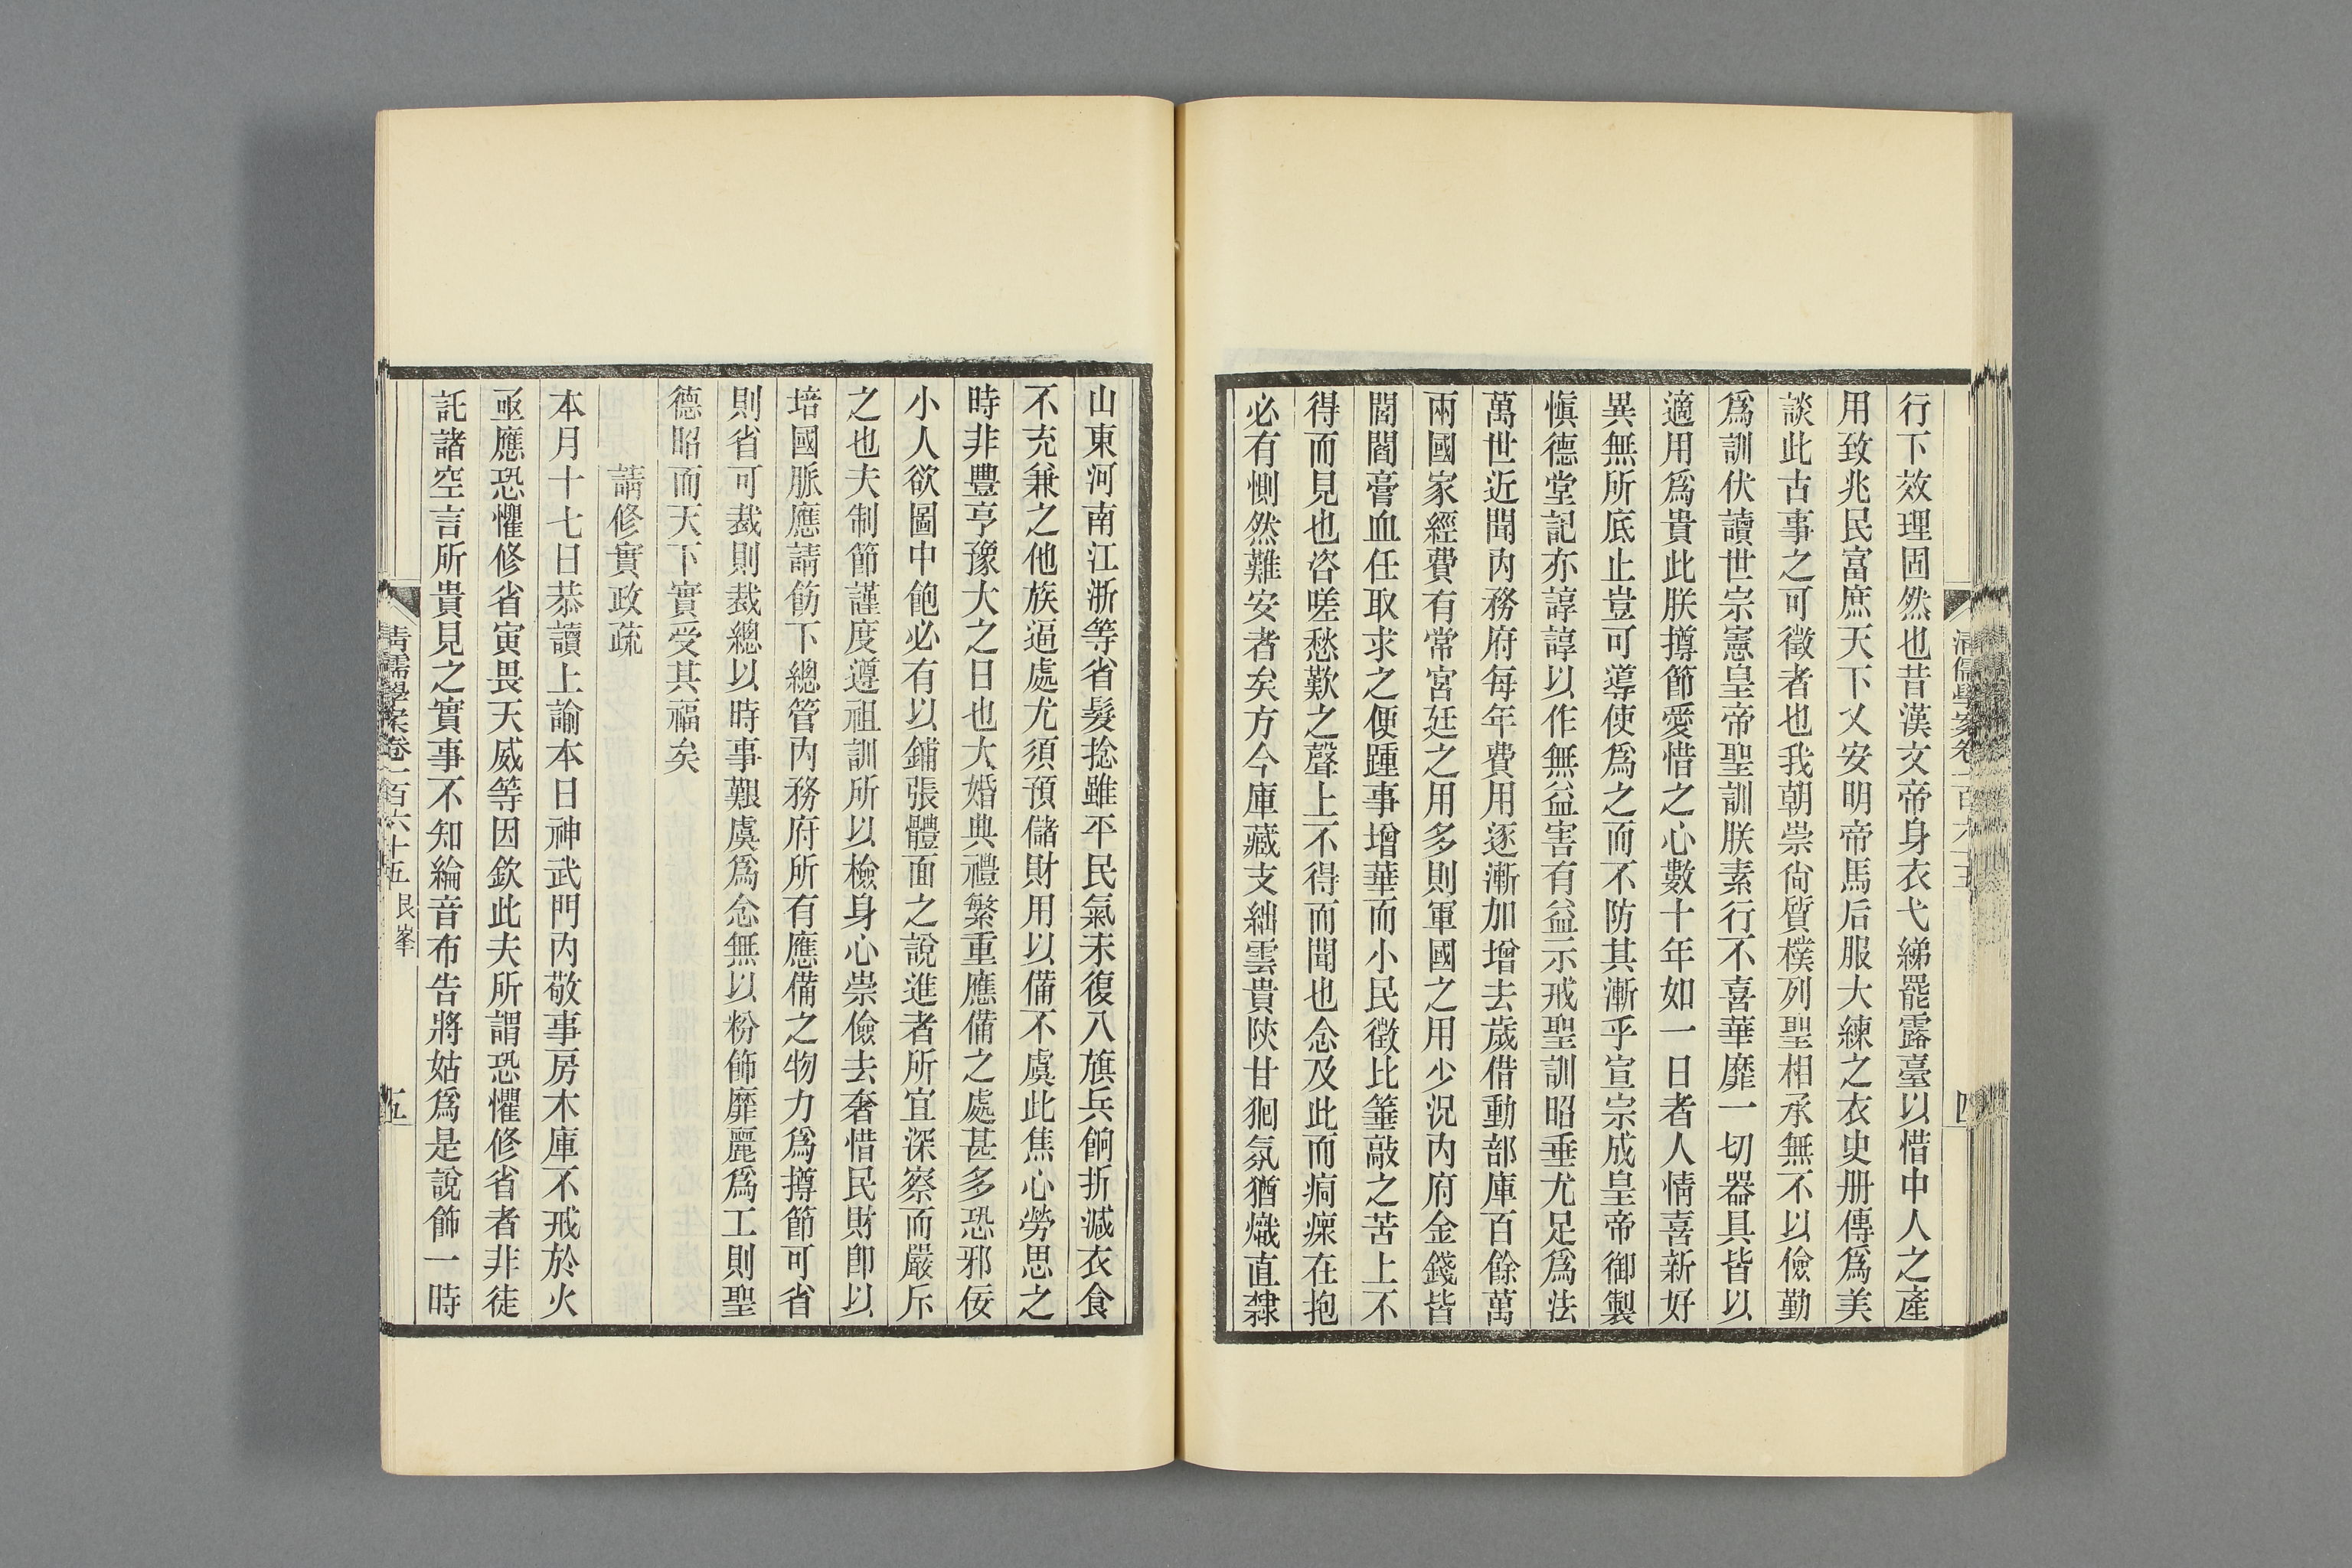 清儒學案卷一百六十五
四
行下效理固然也昔漢文帝身衣弋綈罷露臺以惜中人之產
用致兆民富庶天下乂安明帝馬后服大練之衣史册傳爲美
談此古事之可徵者也我朝崇尙質樸列聖相承無不以儉勤
爲訓伏讀世宗憲皇帝聖訓朕素行不喜華靡一切器具皆以
適用爲貴此朕撙節愛惜之心數十年如一日者人情喜新好
異無所底止豈可導使爲之而不防其漸乎宣宗成皇帝御製
愼德堂記亦諄諄以作無益害有益示戒聖訓昭垂尤足爲法
萬世近聞內務府每年費用逐漸加增去歲借動部庫百餘萬
兩國家經費有常宮廷之用多則軍國之用少況內府金錢皆
閭閻膏血任取求之便踵事增華而小民徵比箠敲之苦上不
得而見也咨嗟愁歎之聲上不得而聞也念及此而痌瘝在抱
必有惻然難安者矣方今庫藏支絀雲貴陝甘狪氛猶熾直隸
山東河南江浙等省髮捻雖平民氣未復八旗兵餉折減衣食
不充兼之他族逼處尤須預儲財用以備不虞此焦心勞思之
時非豐亨豫大之日也大婚典禮繁重應備之處甚多恐邪佞
小人欲圖中飽必有以鋪張體面之說進者所宜深察而嚴斥
之也夫制節謹度遵祖訓所以檢身心崇儉去奢惜民財卽以
培國脈應請飭下總管內務府所有應備之物力爲撙節可省
則省可裁則裁總以時事艱虞爲念無以粉飾靡麗爲工則聖
德昭而天下實受其福矣
請修實政疏
本月十七日恭讀上諭本日神武門內敬事房木庫不戒於火
亟應恐懼修省寅畏天威等因欽此夫所謂恐懼修省者非徒
託諸空言所貴見之實事不知綸音布告將姑爲是說飾一時
清儒學案卷一百六十五 艮峯
五